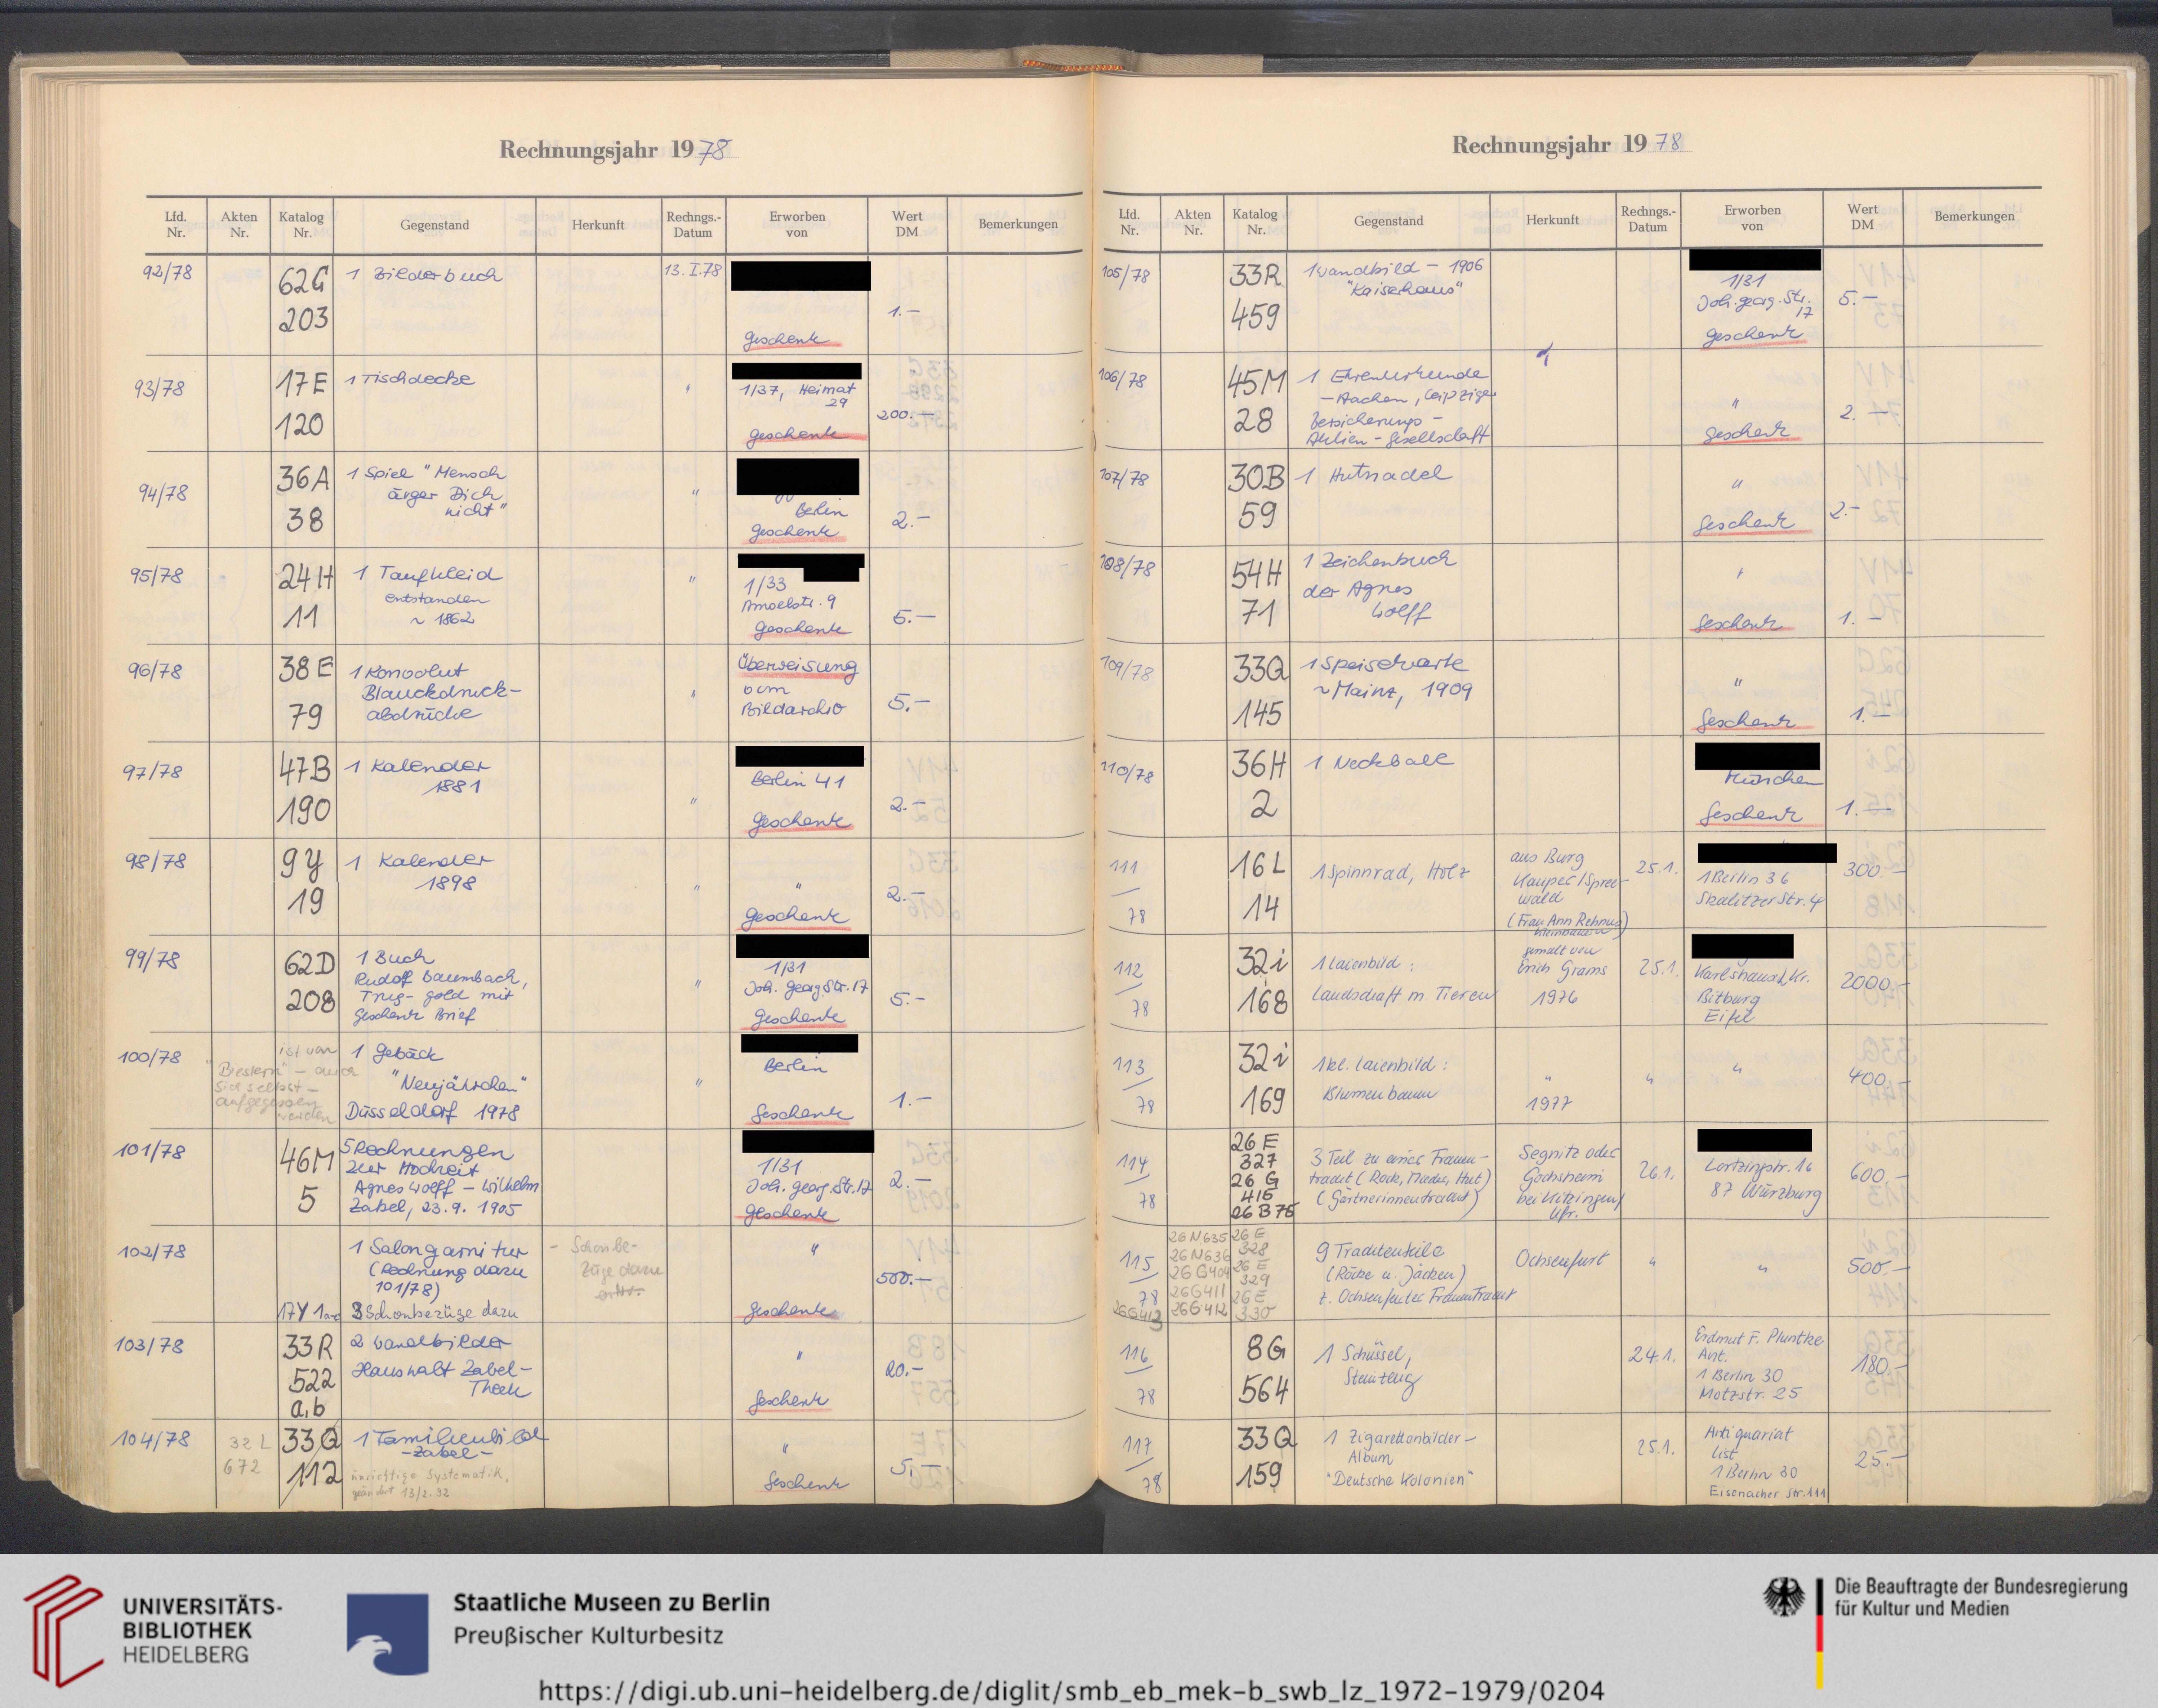 Rechnungsjahr 1978
Lfd. Nr.
Akten Nr.
Katalog Nr.
Gegenstand
Herkunft
Rechngs.- Datum
Erworben von
Wert DM
Bemerkungen
92/78
62G
203
1 Bilderbuch
13.I.78
Geschenk
1.—
93/78
17E
120
1 Tischdecke
1/37, Heimat
29
Geschenk
200.—
94/78
36A
38
1 Spiel "Mensch
ärger Dich
nicht"
"
Berlin
Geschenk
2.—
95/78
24H
11
1 Taufkleid
entstanden
~ 1862
"
1/33
Amselstr. 9
Geschenk
5.—
96/78
38E
79
1 Konvolut
Blauckdruck-
abdrücke
Überweisung
vom
Bildarchiv
5.—
97/78
47B
190
1 Kalender
1881
"
Berlin 41
Geschenk
2.—
98/78
9Y
19
1 Kalender
1898
"
"
Geschenk
2.—
99/78
62D
208
1 Buch
Rudolf Baumbach,
Trug-Gold mit
Geschenk Brief
"
1/31
Joh. Georg Str. 17
Geschenk
5.—
100/78
ist von
"Biestern" – auch
sich selbst –
aufgegessen
worden
1 Gebäck
"Neujährchen"
Düsseldorf 1978
"
Berlin
Geschenk
1.—
101/78
46M
5
5 Rechnungen
zur Hochzeit
Agnes Wolff – Wilhelm
Zabel, 23.9.1905
1/31
Joh. Georg. Str. 17
Geschenk
2.—
102/78
17Y
1 Salongarnitur
(Rechnung dazu
101/78)
3 Schonbezüge dazu
– Schonbe-
züge dazu
"
Geschenk
500.—
103/78
33R
522
a,b
2 Wandbilder
Haushalt Zabel-
Theek
"
Geschenk
20.—
104/78
32L
672
33Q
112
1 Familienbild
-Zabel-
unrichtige Systematik,
geändert 13/2.92
"
Geschenk
5.—
Rechnungsjahr 1978
Lfd. Nr.
Akten Nr.
Katalog Nr.
Gegenstand
Herkunft
Rechngs.- Datum
Erworben von
Wert DM
Bemerkungen
105/78
33R
459
1 Wandbild – 1906
"Kaiserhaus"
1/31
Joh. Georg. Str.
17
Geschenk
5.—
106/78
45M
28
1 Ehrenurkunde
– Aachen, Leipziger
Versicherungs-
Aktien-Gesellschaft
"
Geschenk
2.—
107/78
30B
59
1 Hutnadel
"
Geschenk
2.-
108/78
54H
71
1 Zeichenbuch
der Agnes
Wolff
Geschenk
1.—
109/78
33Q
145
1 Speisekarte
~ Mainz, 1909
"
Geschenk
1.—
110/78
36H
2
1 Neckball
München
Geschenk
1.—
111
78
16L
14
1 Spinnrad, Holz
aus Burg
Kauper/Spree-
wald
25.1.
1 Berlin 36
Skalitzer Str. 4
300.—
112
78
32i
168
1 Laienbild:
Landschaft m Tieren
gemalt von
Erich Grams
1976
25.1.
Bitburg
Eifel
2000.-
113
78
32i
169
1 kl. Laienbild:
Blumenbaum
"
1977
"
"
400.-
114
78
26E
327
26G
415
26B75
3 Teil zu einer Frauen-
tracht (Rock, Mieder, Hut)
(Gärtnerinnentracht)
Segnitz oder
Gochsheim
bei Kitzingen/
Ufr.
26.1.
Lortzingstr. 16
87 Würzburg
600.-
115
78
26G413
26N635
26N636
26G404
26G411
26G412
26E
328
26E
329
26E
330
9 Trachtenteile
(Röcke u. Jacken)
z. Ochsenfurter Frauentracht
Ochsenfurt
"
"
500.-
116
78
8G
564
1 Schüssel,
Steinzeug
24.1.
Erdmut F. Pluntke
Ant.
1 Berlin 30
Motzstr. 25
180.-
117
78
33Q
159
1 Zigarettenbilder-
Album
"Deutsche Kolonien"
25.1.
Antiquariat
List
1 Berlin 30
Eisenacher Str. 111
25.-
UNIVERSITÄTS-
BIBLIOTHEK
HEIDELBERG
Staatliche Museen zu Berlin
Preußischer Kulturbesitz
Die Beauftragte der Bundesregierung
für Kultur und Medien
https://digi.ub.uni-heidelberg.de/diglit/smb_eb_mek-b_swb_lz_1972-1979/0204